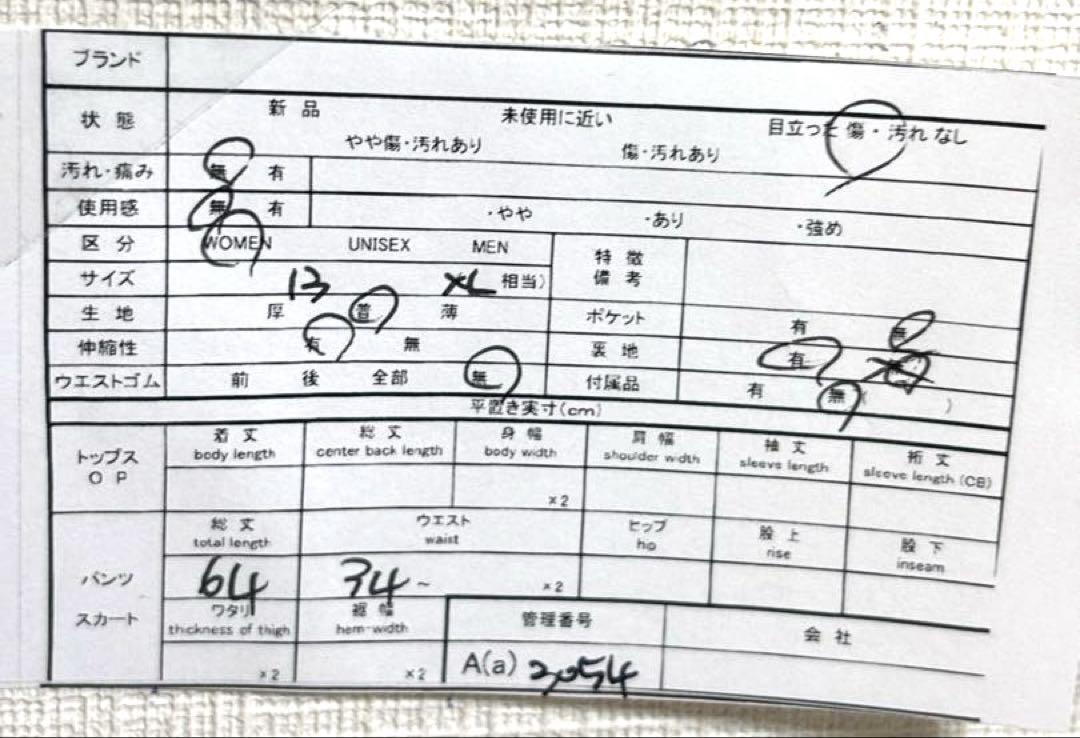 ブランド
状態 新品 未使用に近い 目立った傷・汚れなし
やや傷・汚れあり 傷・汚れあり
汚れ・痛み 無 有
使用感 無 有 ・やや ・あり ・強め
区分 WOMEN UNISEX MEN
特徴
備考
サイズ 13 XL 相当)
生地 厚 普 薄
ポケット 有 無
伸縮性 有 無
裏地 有
ウエストゴム 前 後 全部 無
付属品 有 無 ( )
平置き実寸(cm)
トップス
OP
着丈 総丈 身幅 肩幅 袖丈 裄丈
body length center back length body width shoulder width sleeve length sleeve length (CB)
×2
パンツ
スカート
総丈 ウエスト ヒップ 股上 股下
total length waist hip rise inseam
64 34 ~ ×2
ワタリ 裾幅
thickness of thigh hem-width
×2 ×2
管理番号 会社
A(a) 2054